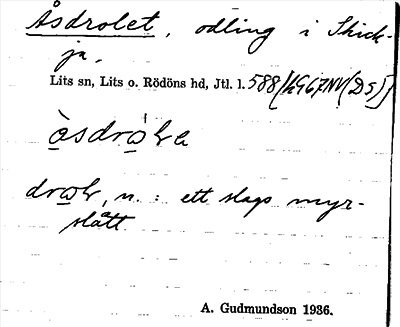 Åsdrolet, odling i Skick-
ja.
Lits sn, Lits o. Rödöns hd, Jtl. l. 588
åsdrɷ̀ɫɛ
drɷɫ, n. : ett slags myr-
slått
A. Gudmundson 1936.